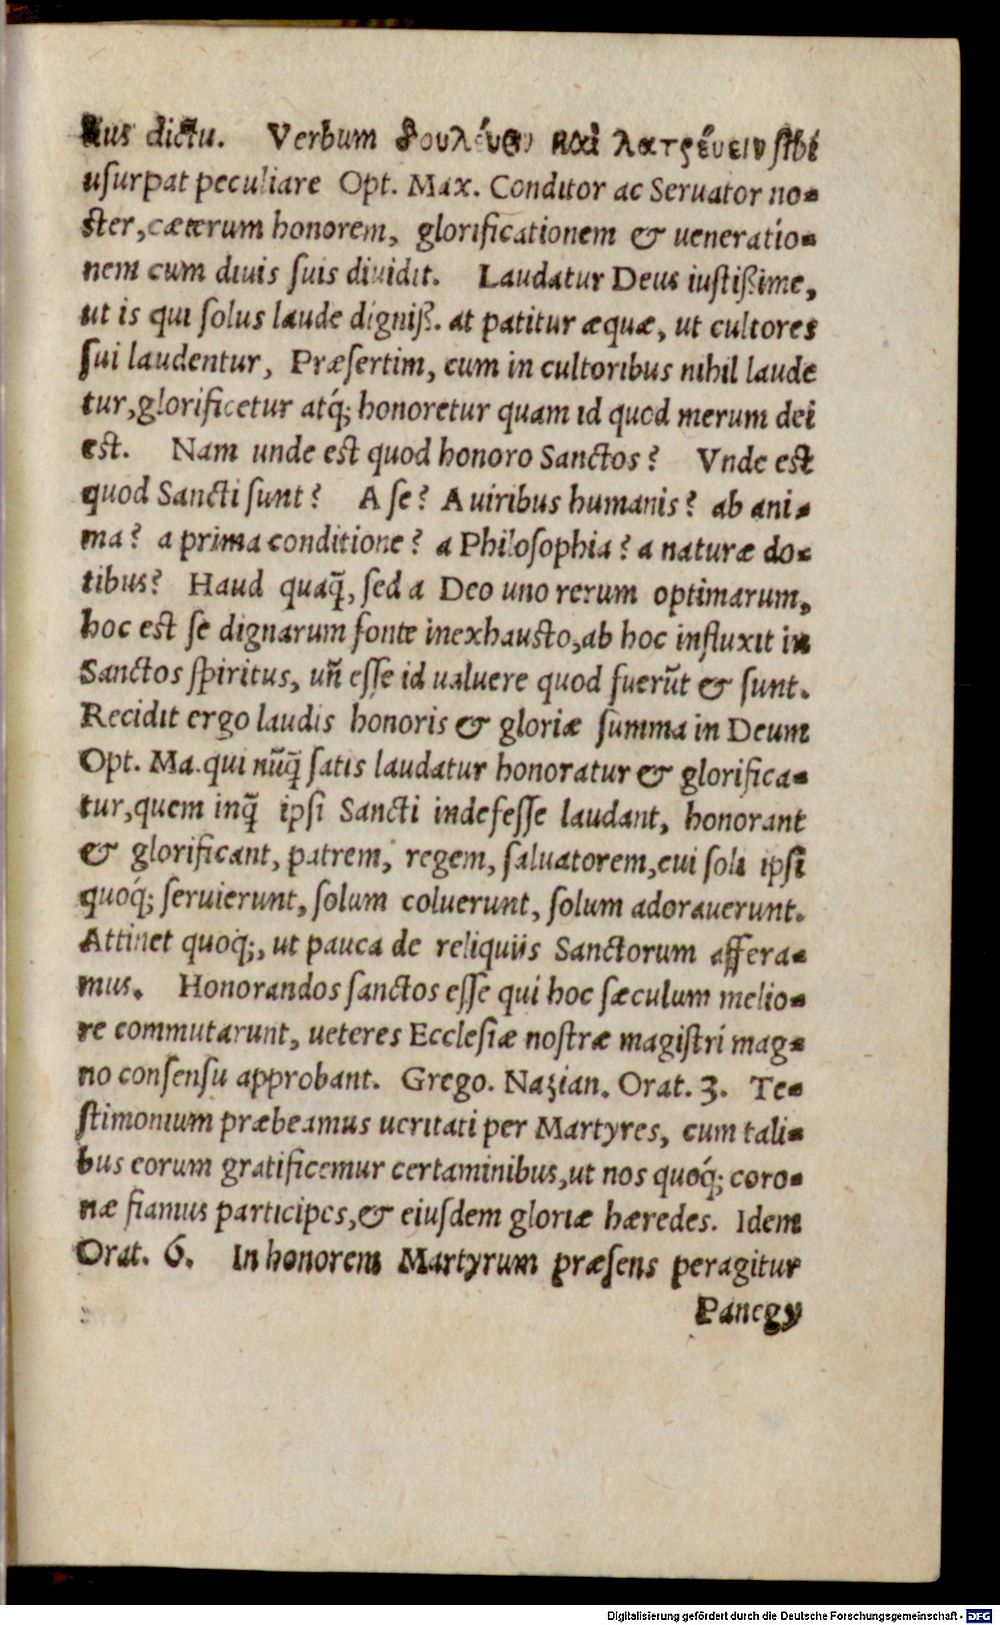 dictu. Verbum καὶ λατρέυειν sibi
usurpat peculiare Opt. Max. Conditor ac Seruator no-
ster, cæterum honorem, glorificationem & ueneratio-
nem cum diuis suis diuidit. Laudatur Deus iustißime,
ut is qui solus laude digniß. at patitur æquæ, ut cultores
sui laudentur, Præsertim, cum in cultoribus nihil laude
tur, glorificetur atq́; honoretur quam id quod merum dei
est. Nam unde est quod honoro Sanctos? Vnde est
quod Sancti sunt? A se? A uiribus humanis? ab ani-
ma? a prima conditione? a Philosophia? a naturæ do-
tibus? Haud quaq̃, sed a Deo uno rerum optimarum,
hoc est se dignarum fonte inexhausto, ab hoc influxit in
Sanctos spiritus, uñ esse id ualuere quod fuerũt & sunt.
Recidit ergo laudis honoris & gloriæ summa in Deum
Opt. Ma. qui nũq̃ satis laudatur honoratur & glorifica-
tur, quem inq̃ ipsi Sancti indefesse laudant, honorant
& glorificant, patrem, regem, saluatorem, cui soli ipsi
quoq́; seruierunt, solum coluerunt, solum adorauerunt.
Attinet quoq́;, ut pauca de reliquiis Sanctorum affera-
mus. Honorandos sanctos esse qui hoc sæculum melio-
re commutarunt, ueteres Ecclesiæ nostræ magistri mag-
no consensu approbant. Grego. Nazian. Orat. 3. Te-
stimonium præbeamus ueritati per Martyres, cum tali-
bus eorum gratificemur certaminibus, ut nos quoq́; coro-
næ fiamus participes, & eiusdem gloriæ hæredes. Idem
Orat. 6. In honorem Martyrum præsens peragitur
Panegy
Digitalisierung gefördert durch die Deutsche Forschungsgemeinschaft - DFG